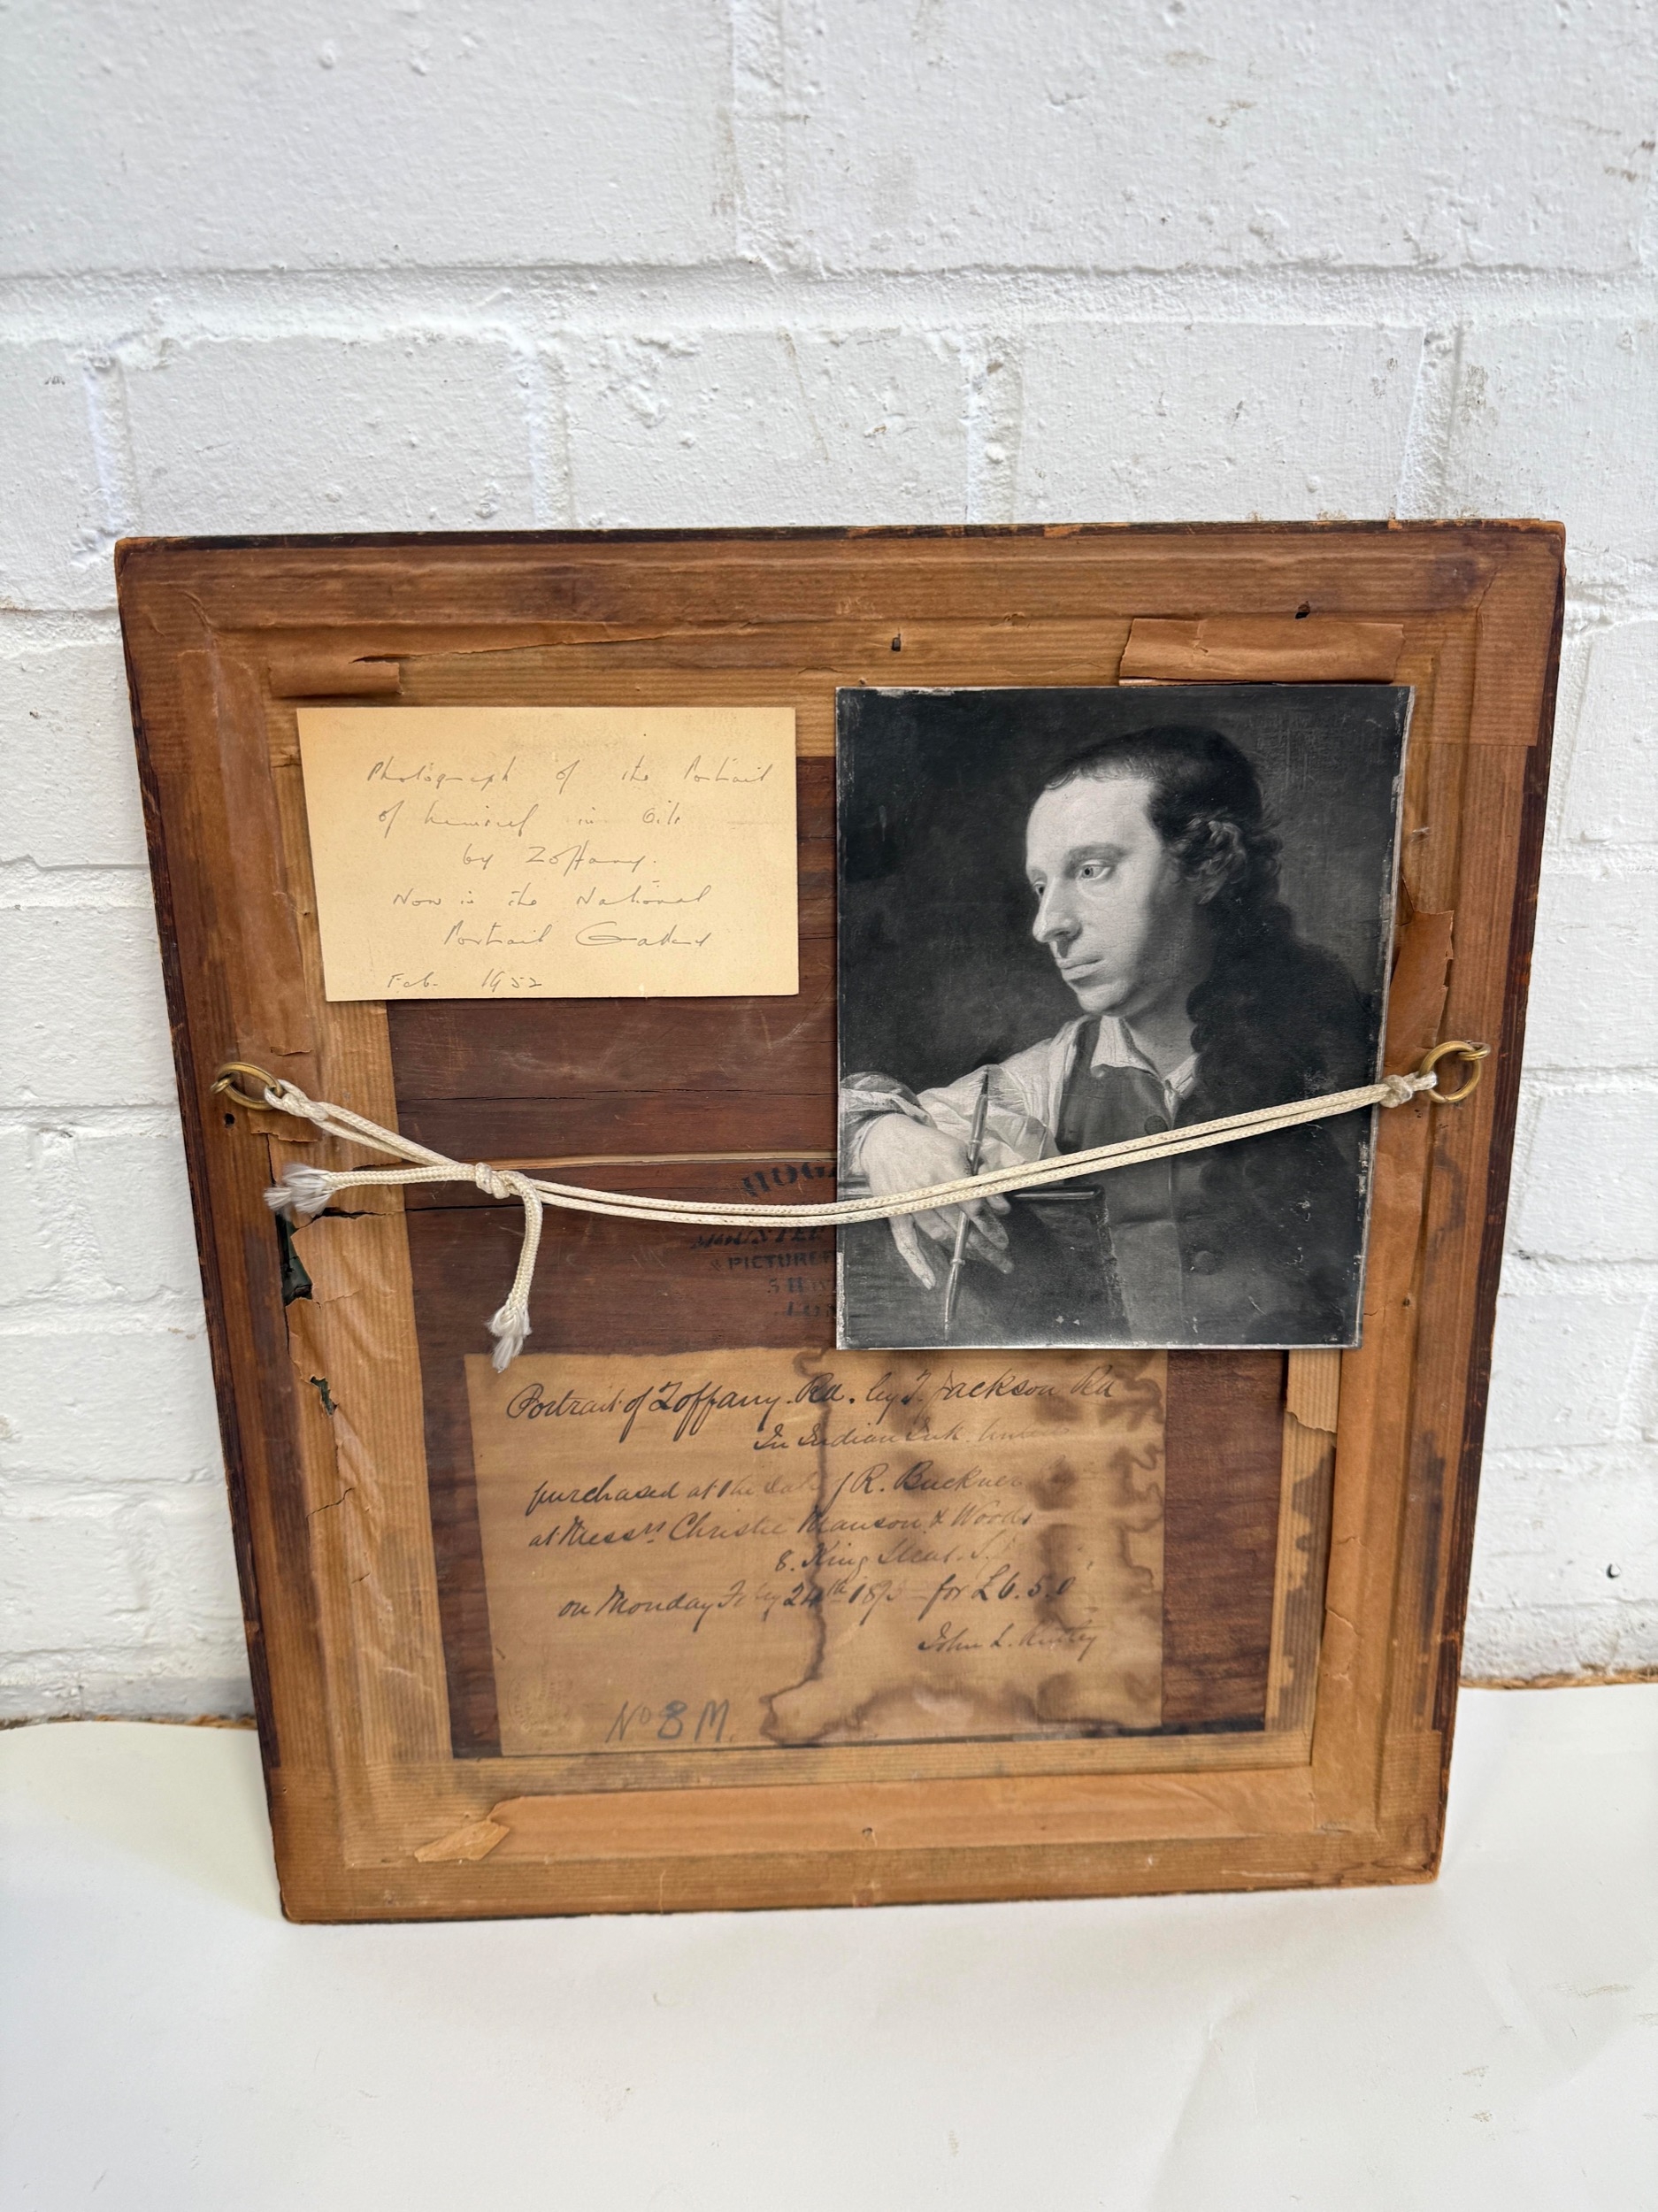 Photograph of the Portrait
of himself in Oils
by Zoffany.
Now in the National
Portrait Gallery
Feb. 1952
HOG
MOUNTER
PICTURE
5
LON
Portrait of Zoffany. Rd. by J. Jackson Rd
In Indian Ink.
purchased at the Sale of R. Buckner
at Messrs. Christie Manson & Woods
8. King Street. S.
on Monday Feby 24th 187 for £6.5.0
John L.
No 8 M.